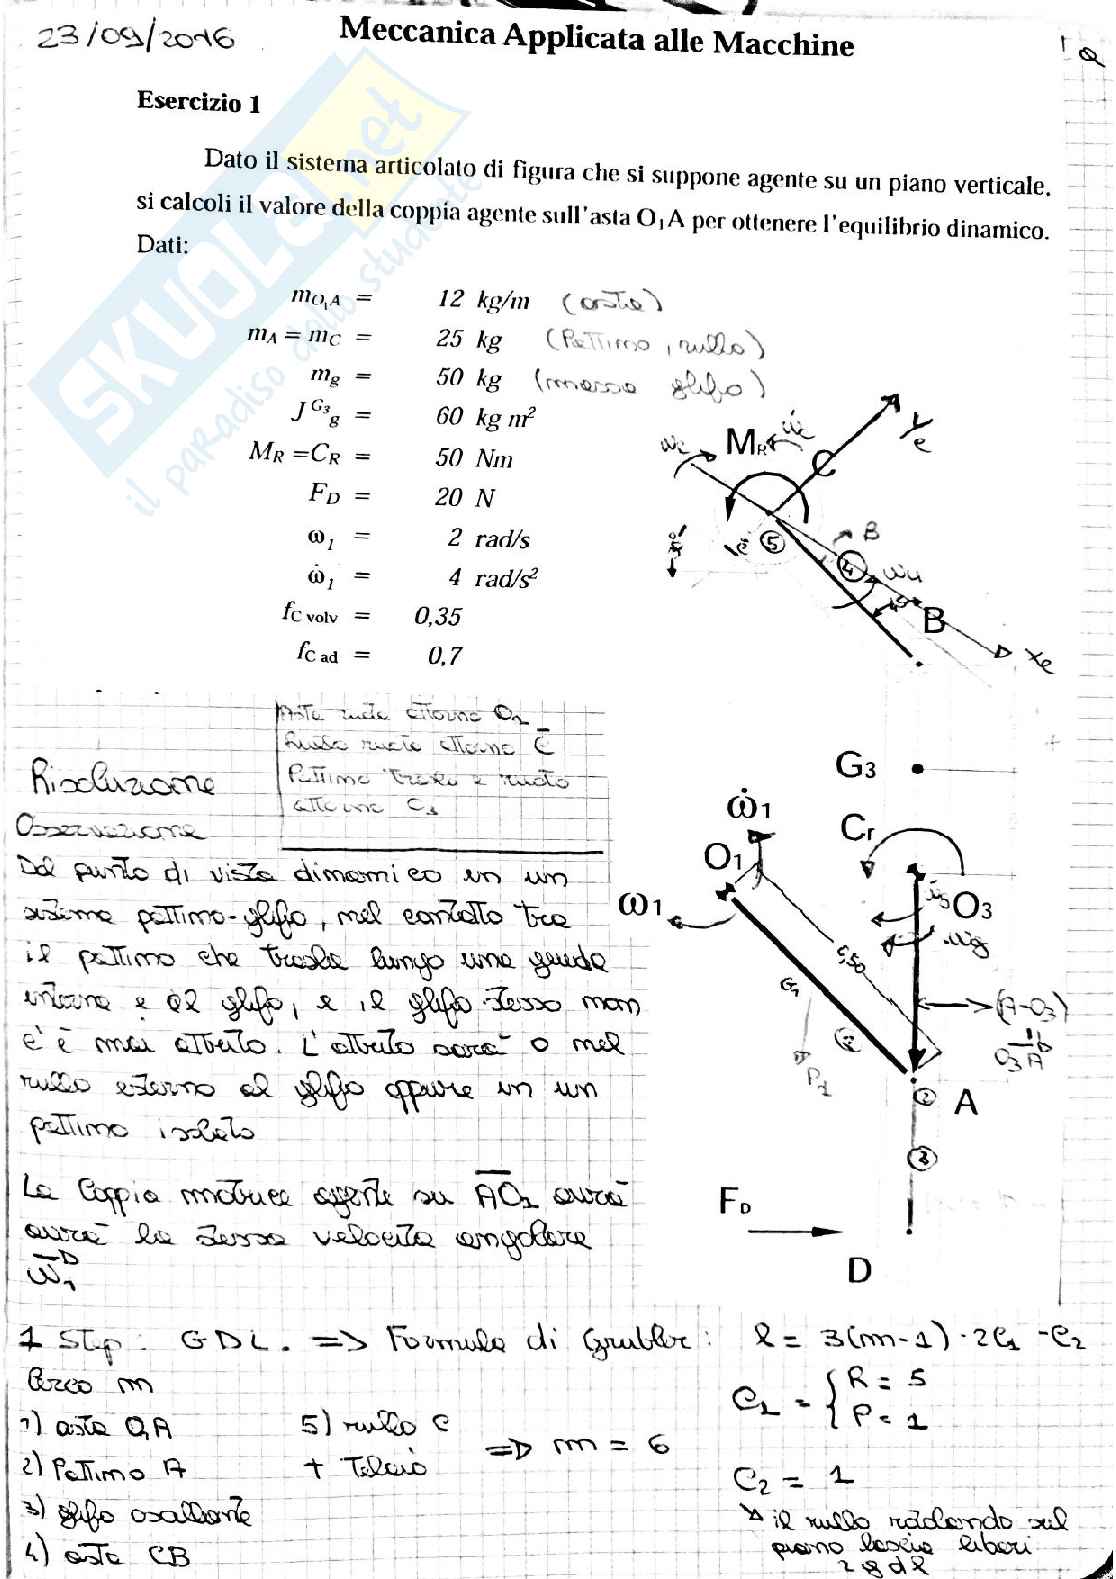 23/09/2016
Meccanica Applicata alle Macchine
Esercizio 1
Dato il sistema articolato di figura che si suppone agente su un piano verticale.
si calcoli il valore della coppia agente sull'asta O₁A per ottenere l'equilibrio dinamico.
Dati:
m_O₁A = 12 kg/m (aste)
m_A = m_C = 25 kg (Pattino, rullo)
m_g = 50 kg (massa glifo)
J^G₃_g = 60 kg m²
M_R = C_R = 50 Nm
F_D = 20 N
ω₁ = 2 rad/s
ω̇₁ = 4 rad/s²
f_C volv = 0,35
f_C ad = 0.7
M_R
C
Ye
5
B
4
B
Xe
Asta ruota attorno O₁
Rullo ruota attorno C
Pattino trasla e ruota
attorno
Risoluzione
Osservazione
Dal punto di vista dinamico in un
sistema pattino-glifo, nel contatto tra
il pattino che trasla lungo una guida
interna e al glifo, e il glifo stesso non
c'è mai attrito. L'attrito sarà o nel
rullo esterno al glifo oppure in un
pattino isolato
La coppia motrice agente su AO₁ avrà
avrà la stessa velocità angolare
ω₁
G₃
ω̇₁
Cr
O₁
ω₁
O₃
ωg
(A-O₃)
O₃A
P₁
2
A
3
F_D
D
1 Step: GDL. => Formula di Grubler: l = 3(m-1) · 2C₁ - C₂
Cerco m
1) asta O₁A
2) Pattino A
3) glifo oscillante
4) asta CB
5) rullo C
+ Telaio
=> m = 6
C₁ = { R = 5
P = 1
C₂ = 1
il rullo rotolando sul
piano lascia liberi
2 gdl
SKUOLA.net
il paradiso dello studente